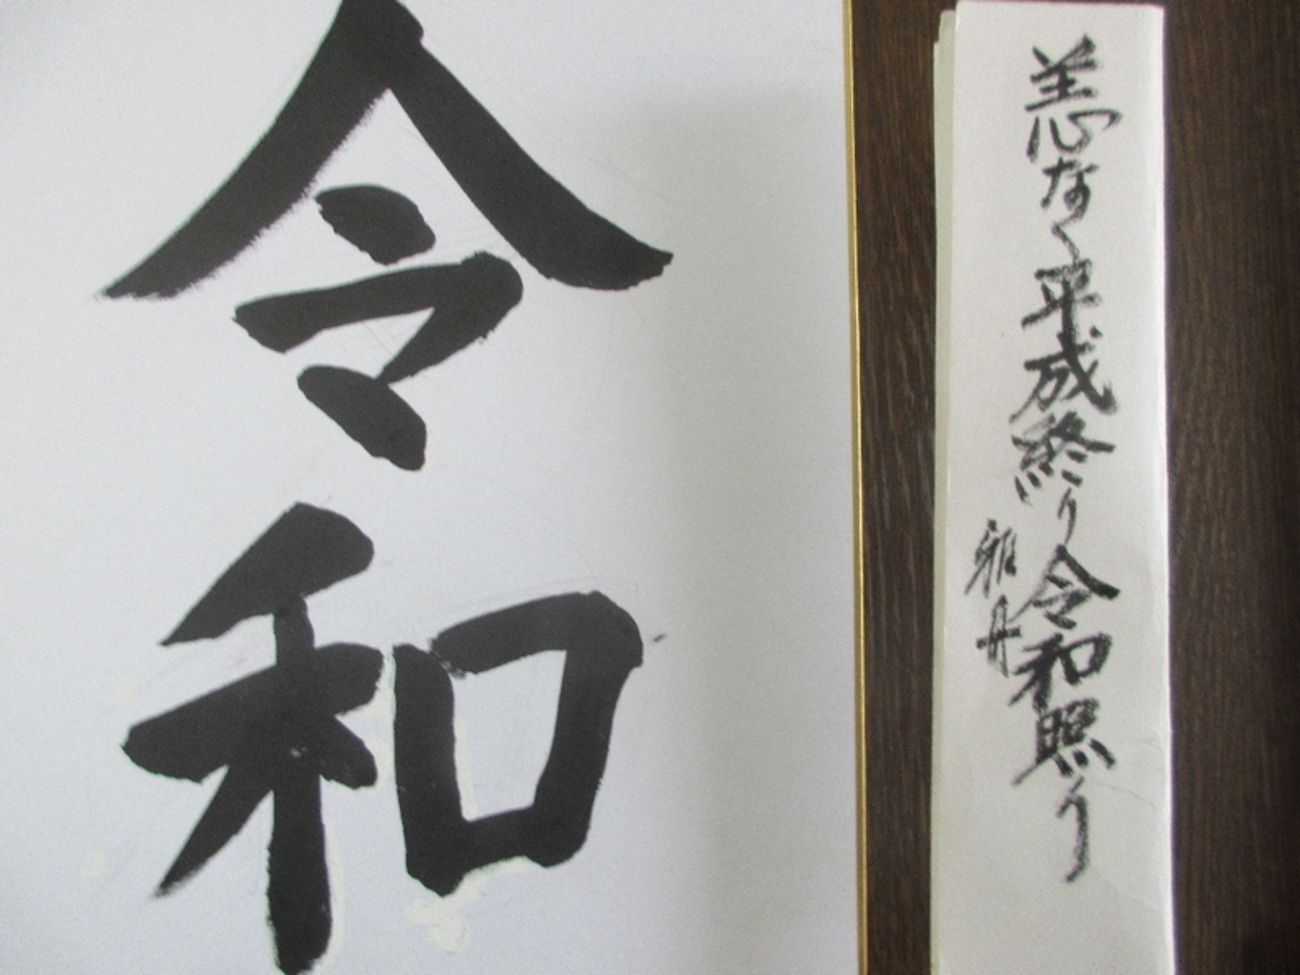 令和
恙なく平成終り令和照り
雅舟